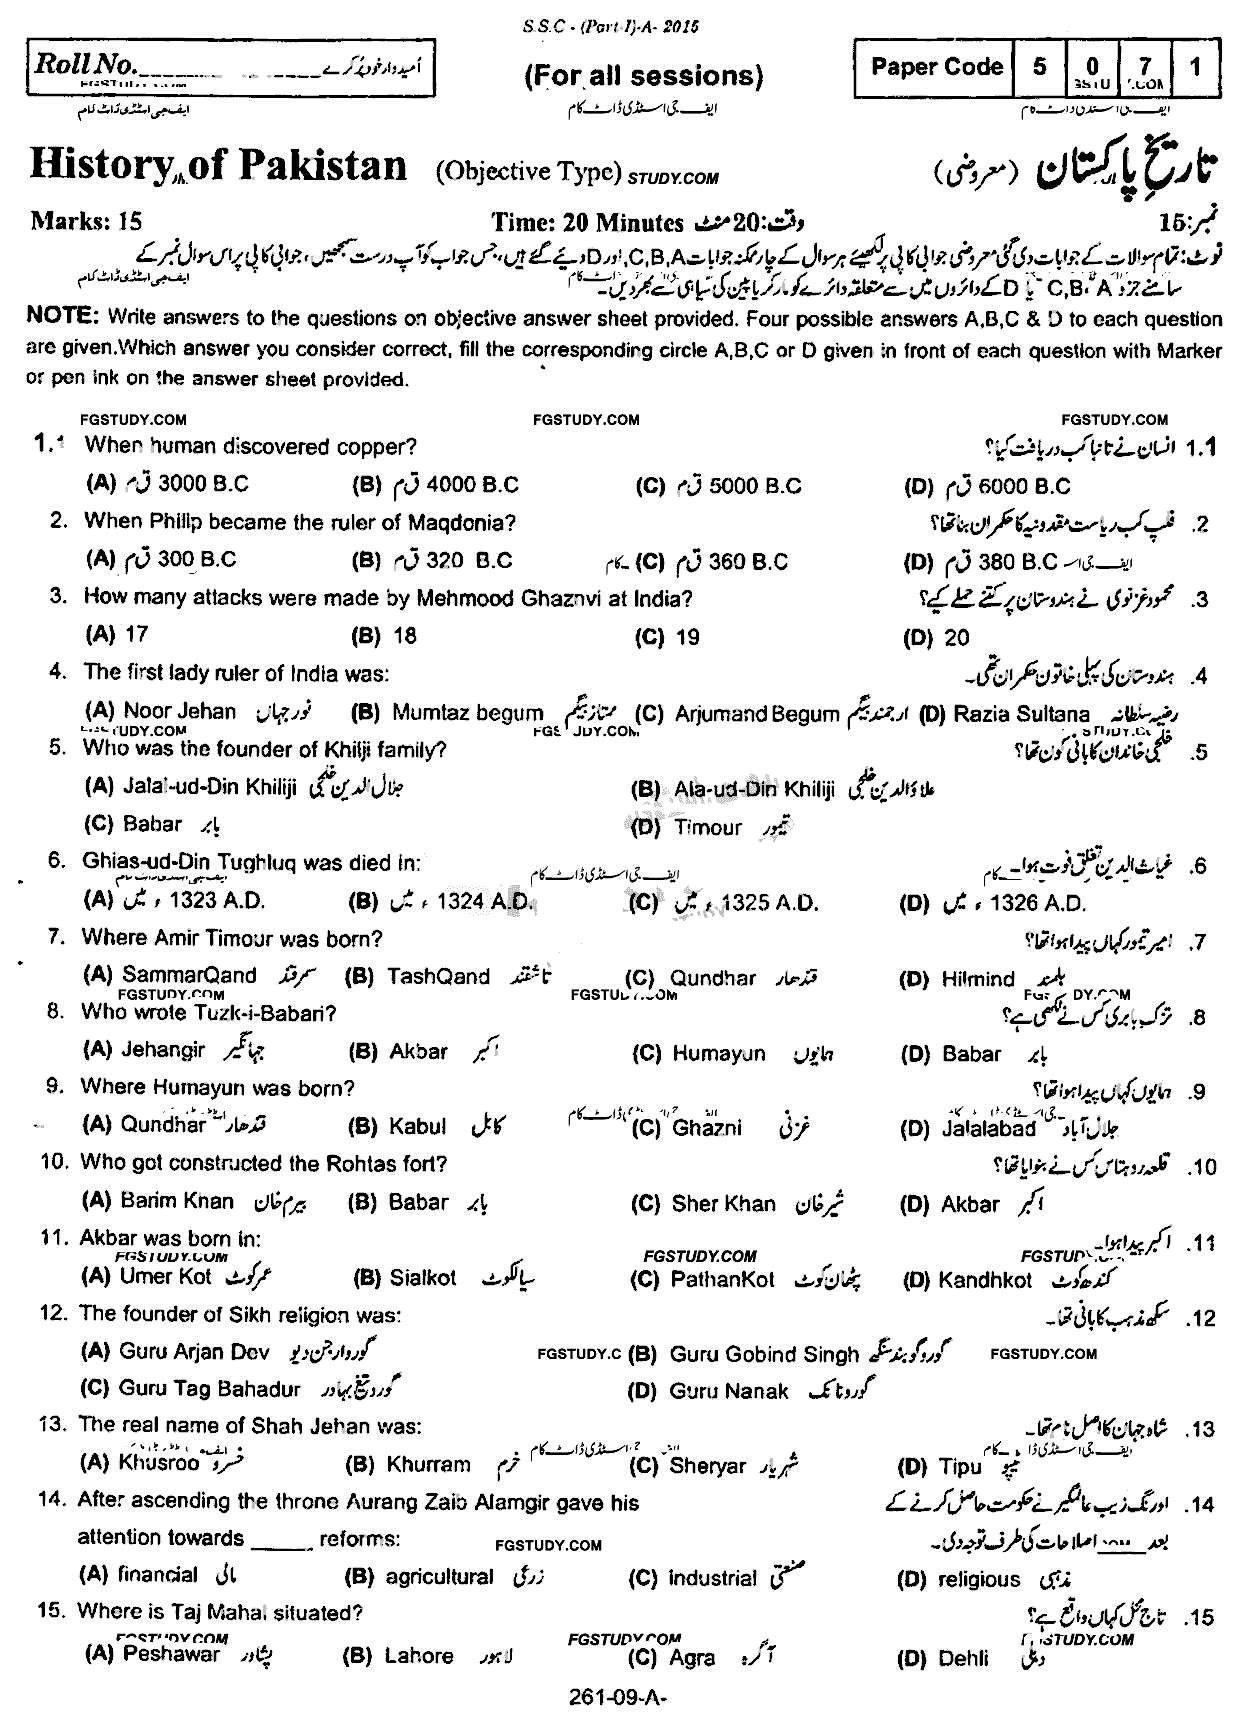 S.S.C - (Part-I)-A- 2015
Roll No. _______ _____ اُمیدوار خود پُر کرے
(For all sessions)
Paper Code 5 0 7 1
ایف جی اسٹڈی ڈاٹ کام ایف جی اسٹڈی ڈاٹ کام ایف جی اسٹڈی ڈاٹ کام
History of Pakistan (Objective Type) STUDY.COM (معروضی) تاریخِ پاکستان
Marks: 15 Time: 20 Minutes وقت:20 منٹ نمبر:15
نوٹ: تمام سوالات کے جوابات دی گئی معروضی جوابی کاپی پر لکھیے ہر سوال کے چار ممکنہ جوابات C,B,A اور D دیئے گئے ہیں، جس جواب کو آپ درست سمجھیں، جوابی کاپی پر اس سوال نمبر کے
سامنے دیئے C,B,A یا D کے دائروں میں سے متعلقہ دائرے کو مارکر یا پین کی سیاہی سے بھر دیں۔
NOTE: Write answers to the questions on objective answer sheet provided. Four possible answers A,B,C & D to each question
are given.Which answer you consider correct, fill the corresponding circle A,B,C or D given in front of each question with Marker
or pen ink on the answer sheet provided.
FGSTUDY.COM FGSTUDY.COM FGSTUDY.COM
1.1 When human discovered copper? انسان نے تانبا کب دریافت کیا؟ 1.1
(A) ق م 3000 B.C (B) ق م 4000 B.C (C) ق م 5000 B.C (D) ق م 6000 B.C
2. When Philip became the ruler of Maqdonia? فلپ کب ریاست مقدونیہ کا حکمران بنا تھا؟ .2
(A) ق م 300 B.C (B) ق م 320 B.C (C) ق م 360 B.C (D) ق م 380 B.C
3. How many attacks were made by Mehmood Ghaznvi at India? محمود غزنوی نے ہندوستان پر کتنے حملے کیے؟ .3
(A) 17 (B) 18 (C) 19 (D) 20
4. The first lady ruler of India was: ہندوستان کی پہلی خاتون حکمران تھی۔ .4
(A) Noor Jehan نور جہاں (B) Mumtaz begum ممتاز بیگم (C) Arjumand Begum ارجمند بیگم (D) Razia Sultana رضیہ سلطانہ
5. Who was the founder of Khilji family? خلجی خاندان کا بانی کون تھا؟ .5
(A) Jalal-ud-Din Khiliji جلال الدین خلجی (B) Ala-ud-Din Khiliji علاؤالدین خلجی
(C) Babar بابر (D) Timour تیمور
6. Ghias-ud-Din Tughluq was died in: غیاث الدین تغلق فوت ہوا۔ .6
ایف جی اسٹڈی ڈاٹ کام
(A) ء میں 1323 A.D. (B) ء میں 1324 A.D. (C) ء میں 1325 A.D. (D) ء میں 1326 A.D.
7. Where Amir Timour was born? امیر تیمور کہاں پیدا ہوا تھا؟ .7
(A) SammarQand سمرقند (B) TashQand تاشقند (C) Qundhar قندھار (D) Hilmind ہلمند
FGSTUDY.COM
8. Who wrote Tuzk-i-Babari? تزک بابری کس نے لکھی ہے؟ .8
(A) Jehangir جہانگیر (B) Akbar اکبر (C) Humayun ہمایوں (D) Babar بابر
9. Where Humayun was born? ہمایوں کہاں پیدا ہوا تھا؟ .9
(A) Qundhar قندھار (B) Kabul کابل (C) Ghazni غزنی (D) Jalalabad جلال آباد
10. Who got constructed the Rohtas fort? قلعہ روہتاس کس نے بنوایا تھا؟ .10
(A) Barim Khan بیرم خان (B) Babar بابر (C) Sher Khan شیر خان (D) Akbar اکبر
11. Akbar was born in: اکبر پیدا ہوا۔ .11
FGSTUDY.COM FGSTUDY.COM
(A) Umer Kot عمر کوٹ (B) Sialkot سیالکوٹ (C) PathanKot پٹھان کوٹ (D) Kandhkot کندھ کوٹ
12. The founder of Sikh religion was: سکھ مذہب کا بانی تھا۔ .12
(A) Guru Arjan Dev گورو ارجن دیو FGSTUDY.C (B) Guru Gobind Singh گورو گوبند سنگھ FGSTUDY.COM
(C) Guru Tag Bahadur گورو تیغ بہادر (D) Guru Nanak گورو نانک
13. The real name of Shah Jehan was: شاہ جہان کا اصل نام تھا۔ .13
(A) Khusroo خسرو (B) Khurram خرم (C) Sheryar شہریار (D) Tipu ٹیپو
14. After ascending the throne Aurang Zaib Alamgir gave his اورنگ زیب عالمگیر نے حکومت حاصل کرنے کے .14
attention towards _____ reforms: FGSTUDY.COM بعد _____ اصلاحات کی طرف توجہ دی۔
(A) financial مالی (B) agricultural زرعی (C) industrial صنعتی (D) religious مذہبی
15. Where is Taj Mahal situated? تاج محل کہاں واقع ہے؟ .15
FGSTUDY.COM FGSTUDY.COM
(A) Peshawar پشاور (B) Lahore لاہور (C) Agra آگرہ (D) Dehli دہلی
261-09-A-